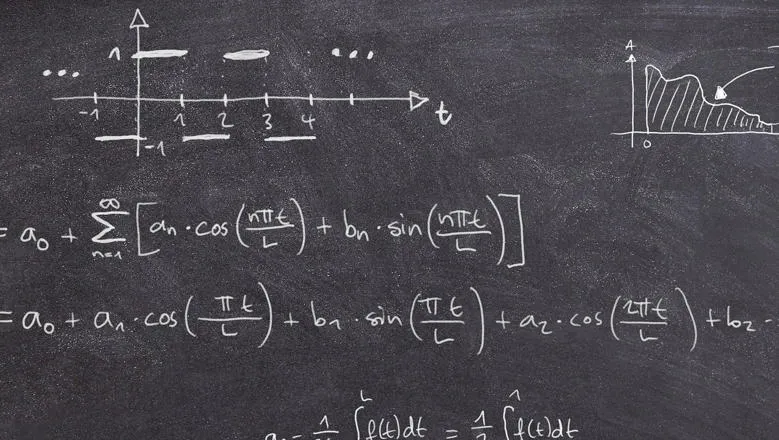 1
-1 1 2 3 4 t
-1
A
0
= a₀ + ∑ₙ₌₁^∞ [aₙ · cos(nπt/L) + bₙ · sin(nπt/L)]
= a₀ + a₁ · cos(πt/L) + b₁ · sin(πt/L) + a₂ · cos(2πt/L) + b₂ ·
∫^L f(t)dt = 1/2 ∫^1 f(t)dt